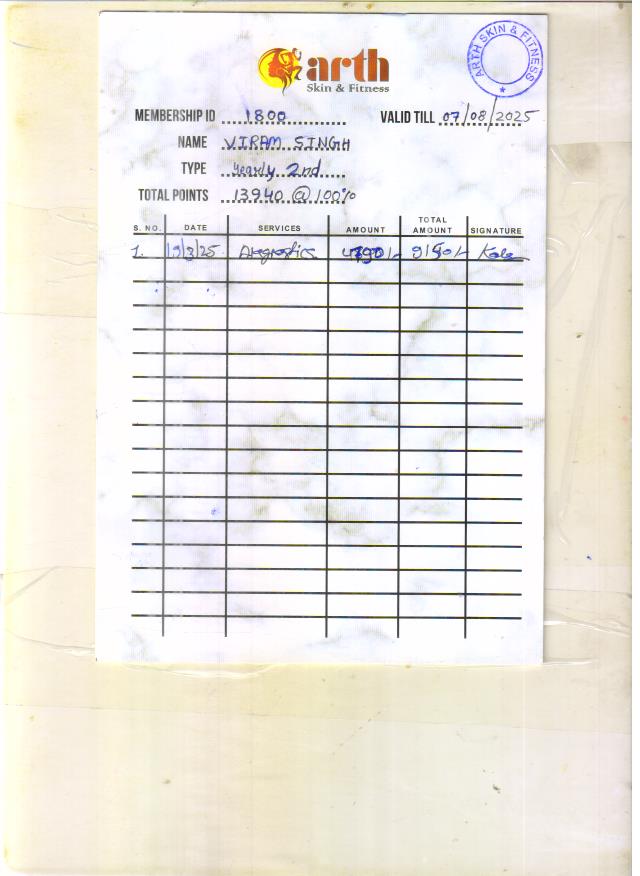 arth
Skin & Fitness
ARTH SKIN & FITNESS
MEMBERSHIP ID 1800 VALID TILL 07/08/2025
NAME VIRAM SINGH
TYPE Yearly 2nd
TOTAL POINTS 13940 @ 100%
S. NO. DATE SERVICES AMOUNT TOTAL AMOUNT SIGNATURE
1. 19/3/25